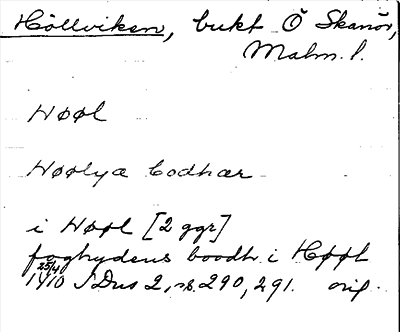 Höllviken, bukt Ö Skanör,
Malm. l.
Høøl
Høølyæ bodhær
i Høøl [2 ggr]
foghydens boodh i Høøl
25/4
1410 SDns 2, s. 290, 291. orig.